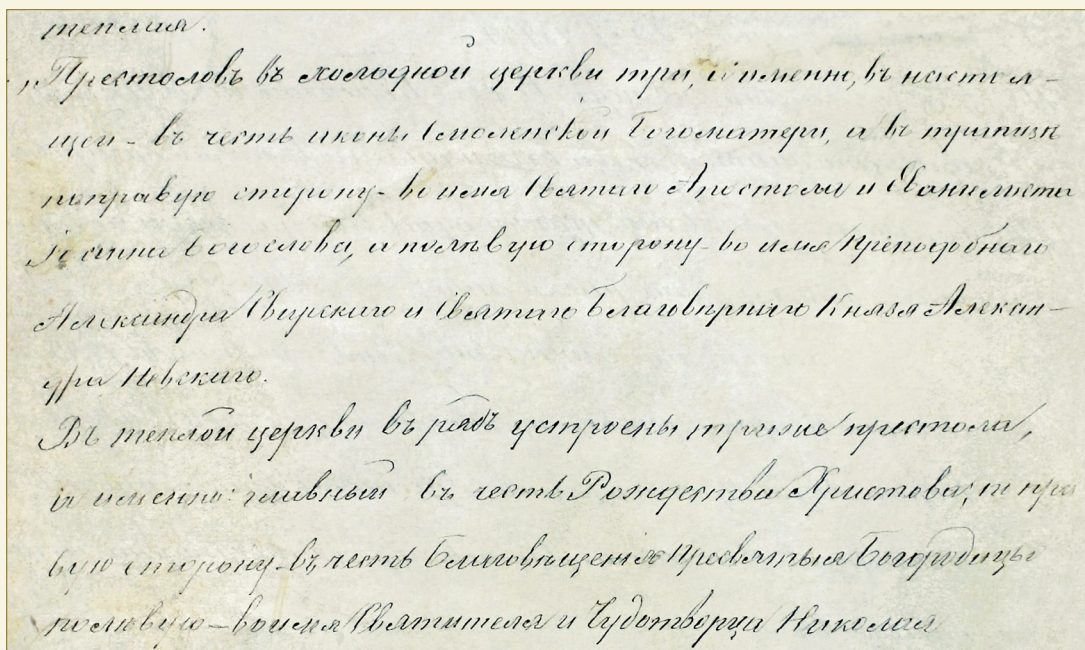 теплая.
Престоловъ въ холодной церкви три, а именно, въ настоя-
щей - въ честь иконы Смоленской Богоматери, а въ трапизѣ
поправую сторону - во имя Святаго Апостола и Евангелиста
Іоанна Богослова, а полѣвую сторону - во имя Преподобнаго
Александра Свирскаго и Святаго Благовѣрнаго Князя Алексан-
дра Невскаго.
Въ теплой церкви въ рядъ устроены три же престола,
а именно: главный въ честь Рождества Христова, по пра
вую сторону - въ честь Благовѣщенія Пресвятыя Богородицы
полѣвую - во имя Святителя и Чудотворца Николая